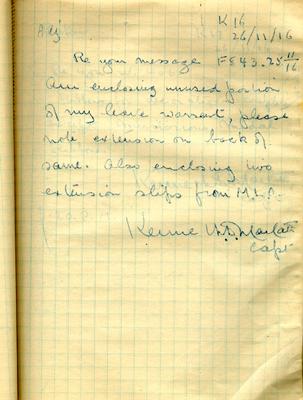 K 16
Adj 26/11/16
Re your message F 843. 25 11/16
Am enclosing unused portion
of my leave warrant, please
note extension on back of
same. Also enclosing two
extension slips from M.L.O.
Capt